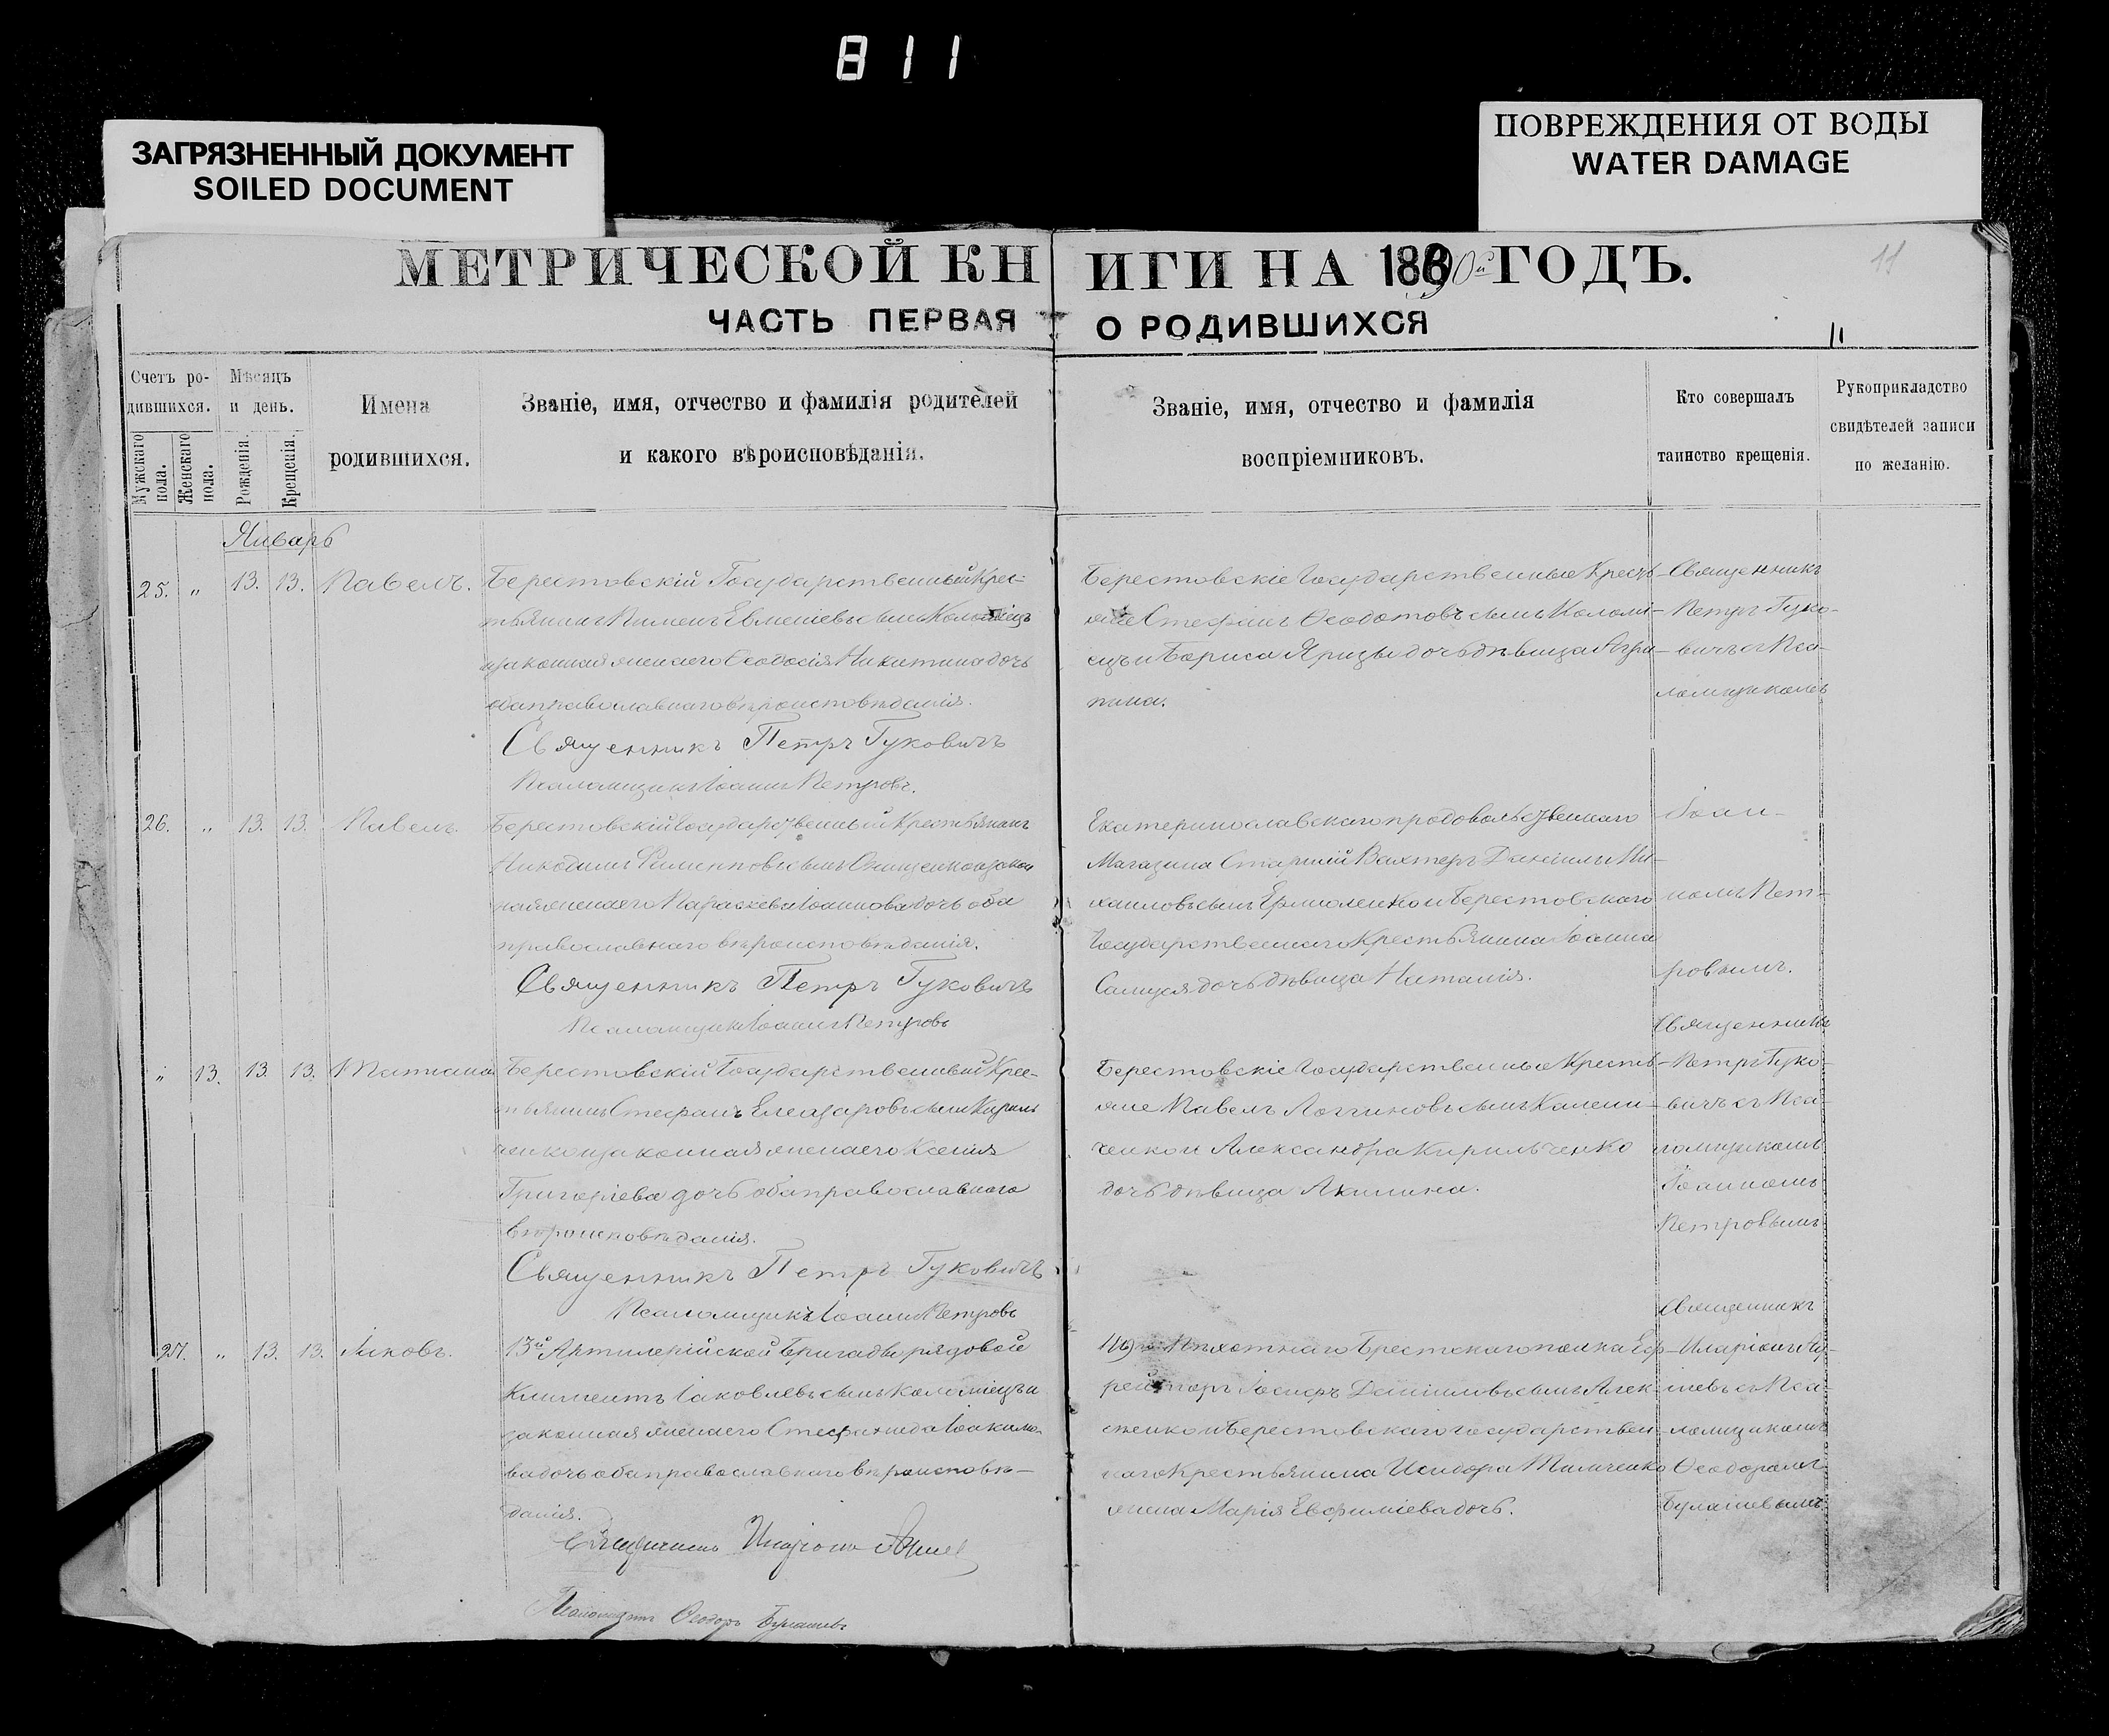 811
ЗАГРЯЗНЕННЫЙ ДОКУМЕНТ
SOILED DOCUMENT
ПОВРЕЖДЕНИЯ ОТ ВОДЫ
WATER DAMAGE
МЕТРИЧЕСКОЙ КНИГИ НА 1890й ГОДЪ.
11
ЧАСТЬ ПЕРВАЯ О РОДИВШИХСЯ
11
Счетъ родившихся.
Мужскаго пола.
Женскаго пола.
Мѣсяцъ и день.
Рожденія.
Крещенія.
Имена
родившихся.
Званіе, имя, отчество и фамилія родителей
и какого вѣроисповѣданія.
Званіе, имя, отчество и фамилія
воспріемниковъ.
Кто совершалъ
таинство крещенія.
Рукоприкладство
свидѣтелей записи
по желанію.
Январь
25. " 13. 13. Павелъ.
Берестовскій Государственный Крес-
тьянинъ Пименъ Евменіевъ сынъ Коломіецъ
и законная жена его Ѳеодосія Никитина дочь
оба православнаго вѣроисповѣданія.
Священникъ Петръ Гуковичъ
Псаломщикъ Іоаннъ Петровъ.
Берестовскіе Государственные Кресть-
яне Стефанъ Ѳеодотовъ сынъ Коломі-
ецъ и Бориса Ярицы дочь дѣвица Агри-
пина.
Священникъ
Петръ Гуко-
вичъ съ Пса-
ломщикомъ
26. " 13. 13. Павелъ.
Берестовскій Государственный Крестьянинъ
Никодимъ Филипповъ сынъ Онищенко и закон
ная жена его Параскева Іоаннова дочь оба
православнаго вѣроисповѣданія.
Священникъ Петръ Гуковичъ
Псаломщикъ Іоаннъ Петровъ
Екатеринославскаго продовольственнаго
Магазина Старшій Вахтеръ Даніилъ Ми-
хаиловъ сынъ Ермоленко и Берестовскаго
Государственнаго Крестьянина Іоанна
Самуся дочь дѣвица Наталія.
Іоан-
номъ Пет-
ровымъ.
" 13. 13. 13. Татіана
Берестовскій Государственный Крес-
тьянинъ Стефанъ Елеазаровъ сынъ Кириль
ченко и законная жена его Ксенія
Григоріева дочь оба православнаго
вѣроисповѣданія.
Священникъ Петръ Гуковичъ
Псаломщикъ Іоаннъ Петровъ
Берестовскіе Государственные Кресть-
яне Павелъ Логгиновъ сынъ Калени-
ченко и Александра Кирильченко
дочь дѣвица Акилина.
Священникъ
Петръ Гуко-
вичъ съ Пса-
ломщикомъ
Іоанномъ
Петровымъ
27. " 13. 13. Іаковъ.
13й Артилерійской бригады рядовой
Климентъ Іаковлевъ сынъ Коломіецъ и
законная жена его Стефанида Іоакимо-
ва дочь оба православнаго вѣроисповѣ-
данія.
Священникъ Иларіонъ
Псаломщикъ Ѳеодоръ Булашевъ
49го Пѣхотнаго Брестскаго полка Еф-
рейторъ Іосифъ Даніиловъ сынъ Алек-
сѣенко и Берестовскаго Государствен-
наго Крестьянина Исидора Тимченко
жена Марія Евфиміева дочь.
Священникъ
Иларіонъ
съ Пса-
ломщикомъ
Ѳеодоромъ
Булашевымъ